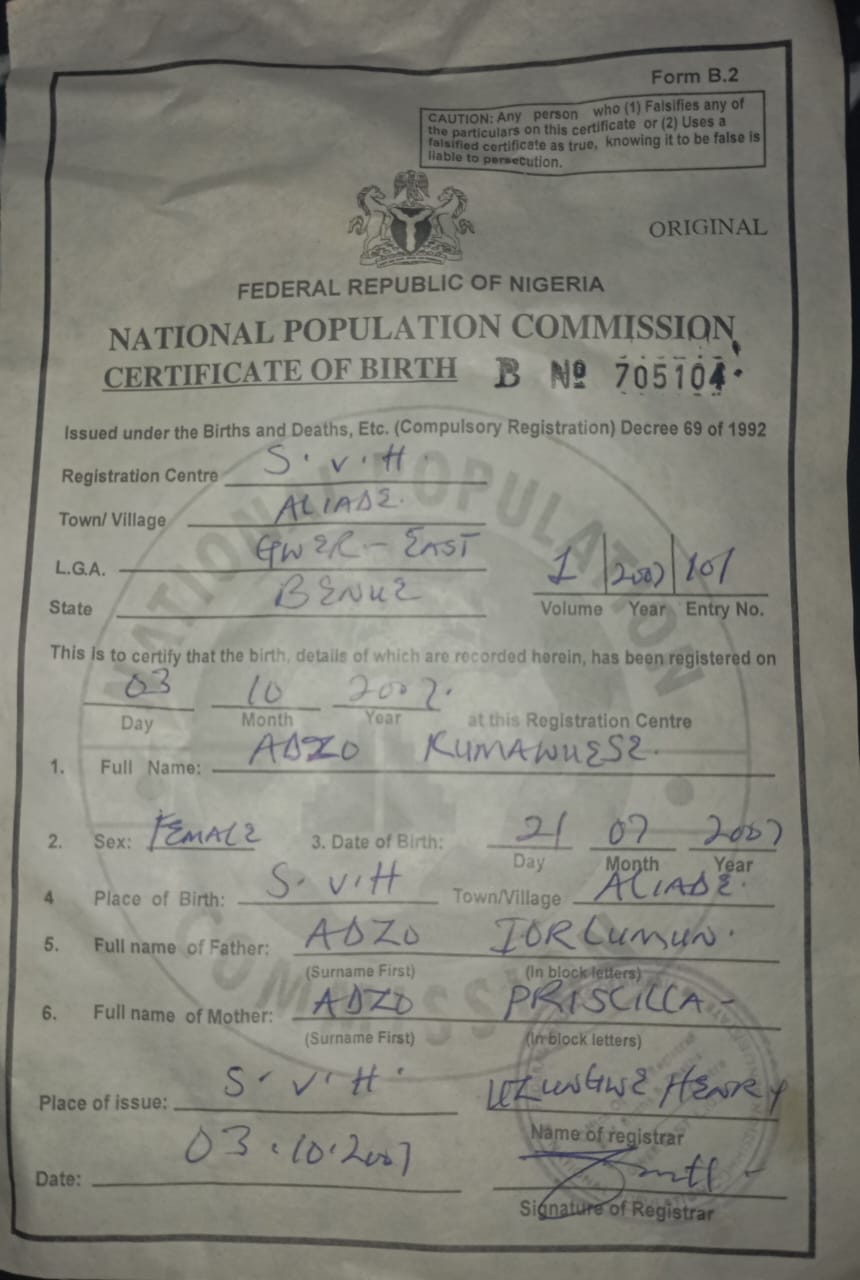 Form B.2
CAUTION: Any person who (1) Falsifies any of
the particulars on this certificate or (2) Uses a
falsified certificate as true, knowing it to be false is
liable to persecution.
ORIGINAL
FEDERAL REPUBLIC OF NIGERIA
NATIONAL POPULATION COMMISSION
CERTIFICATE OF BIRTH B Nº 705104
Issued under the Births and Deaths, Etc. (Compulsory Registration) Decree 69 of 1992
Registration Centre S.V.H.
Town/ Village ALIADE.
L.G.A. GWER-EAST
State BENUE
1 2007 101
Volume Year Entry No.
This is to certify that the birth, details of which are recorded herein, has been registered on
03 10 2007.
Day Month Year at this Registration Centre
1. Full Name: ADZO KUMAWUESE.
2. Sex: FEMALE 3. Date of Birth: 21 07 2007
Day Month Year
4 Place of Birth: S.V.H Town/Village ALIADE.
5. Full name of Father: ADZO IORLUMUN.
(Surname First) (In block letters)
6. Full name of Mother: ADZO PRISCILLA-
(Surname First) (In block letters)
Place of issue: S.V.H. HENRY
Name of registrar
Date: 03.10.2007
Signature of Registrar
NATIONAL POPULATION
COMMISSION